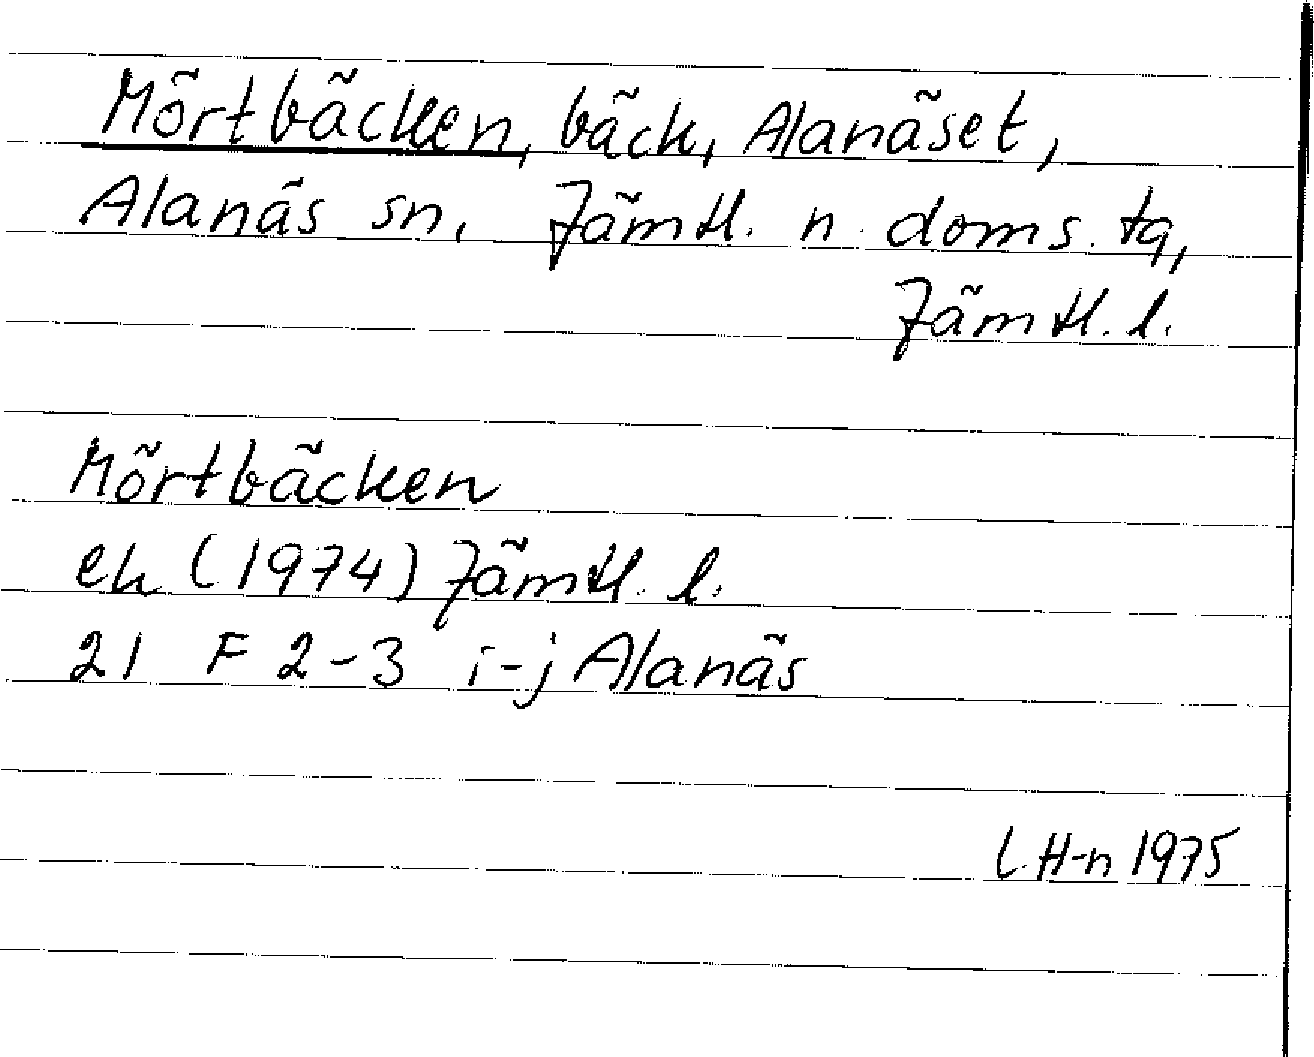 Mörtbäcken, bäck, Alanäset,
Alanäs sn, Jämtl. n. doms. tg,
Jämtl. l.
Mörtbäcken
ek (1974) Jämtl. l.
21 F 2-3 i-j Alanäs
L. H-n 1975